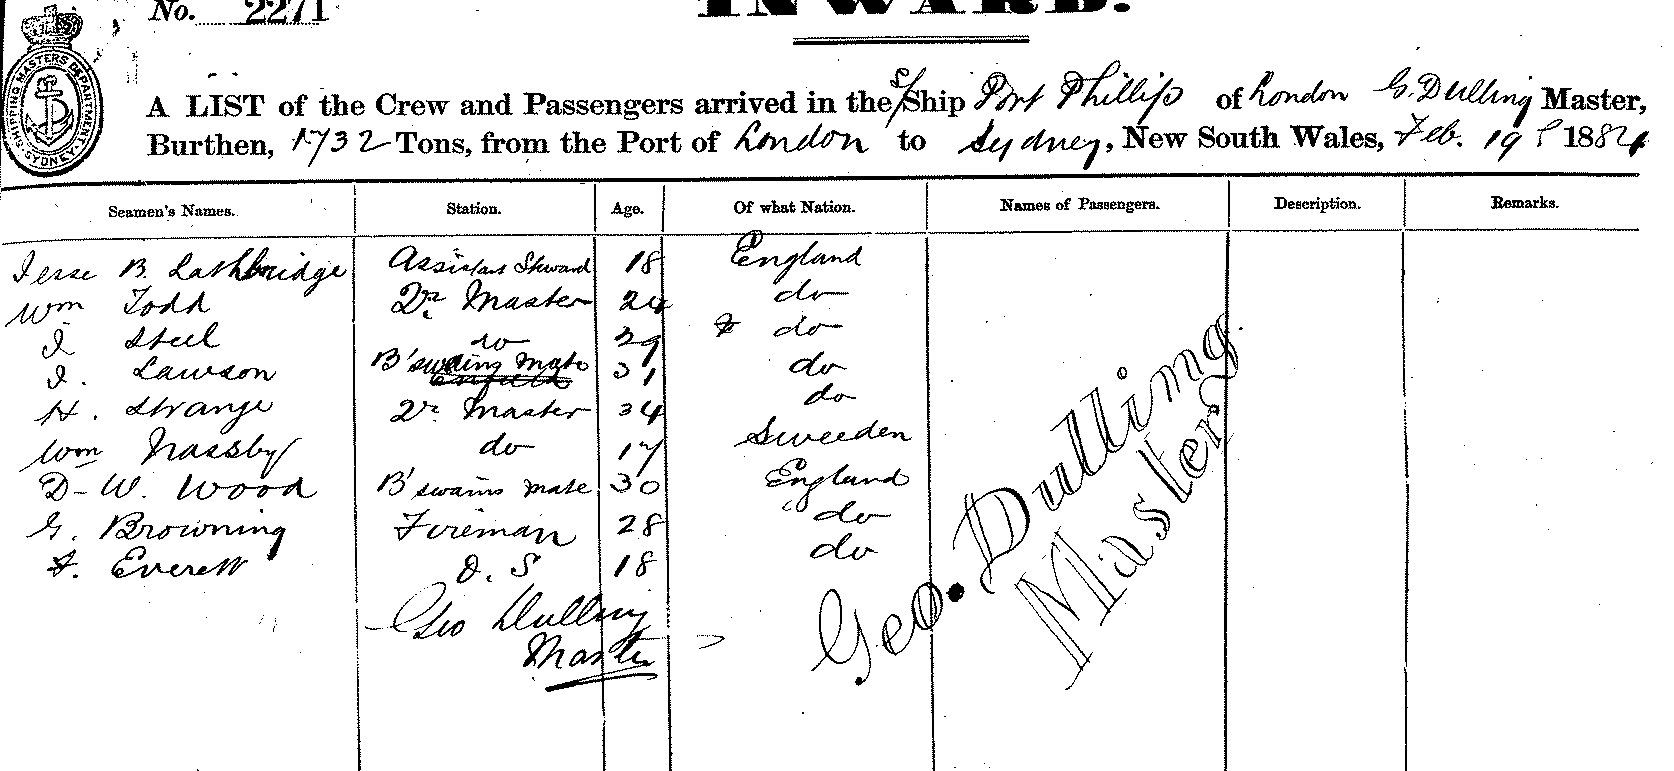 No. 2271
INWARD.
SHIPPING MASTERS DEPARTMENT SYDNEY
A LIST of the Crew and Passengers arrived in the S/Ship Port Phillip of London G. Dulling Master,
Burthen, 1732 Tons, from the Port of London to Sydney, New South Wales, Feb. 19 1884
Seamen's Names. Station. Age. Of what Nation. Names of Passengers. Description. Remarks.
Jesse B. Lathbridge Assistant Steward 18 England
Wm Todd Qr. Master 24 do
J Steel do 39 do
J. Lawson B'swains Mate 31 do
H. Strange Qr Master 34 do
Wm Nassby do 17 Sweeden
D. W. Wood B'swains mate 30 England
G. Browning Fireman 28 do
Everett O. S 18 do
Geo Dulling
Master
Geo. Dulling
Master